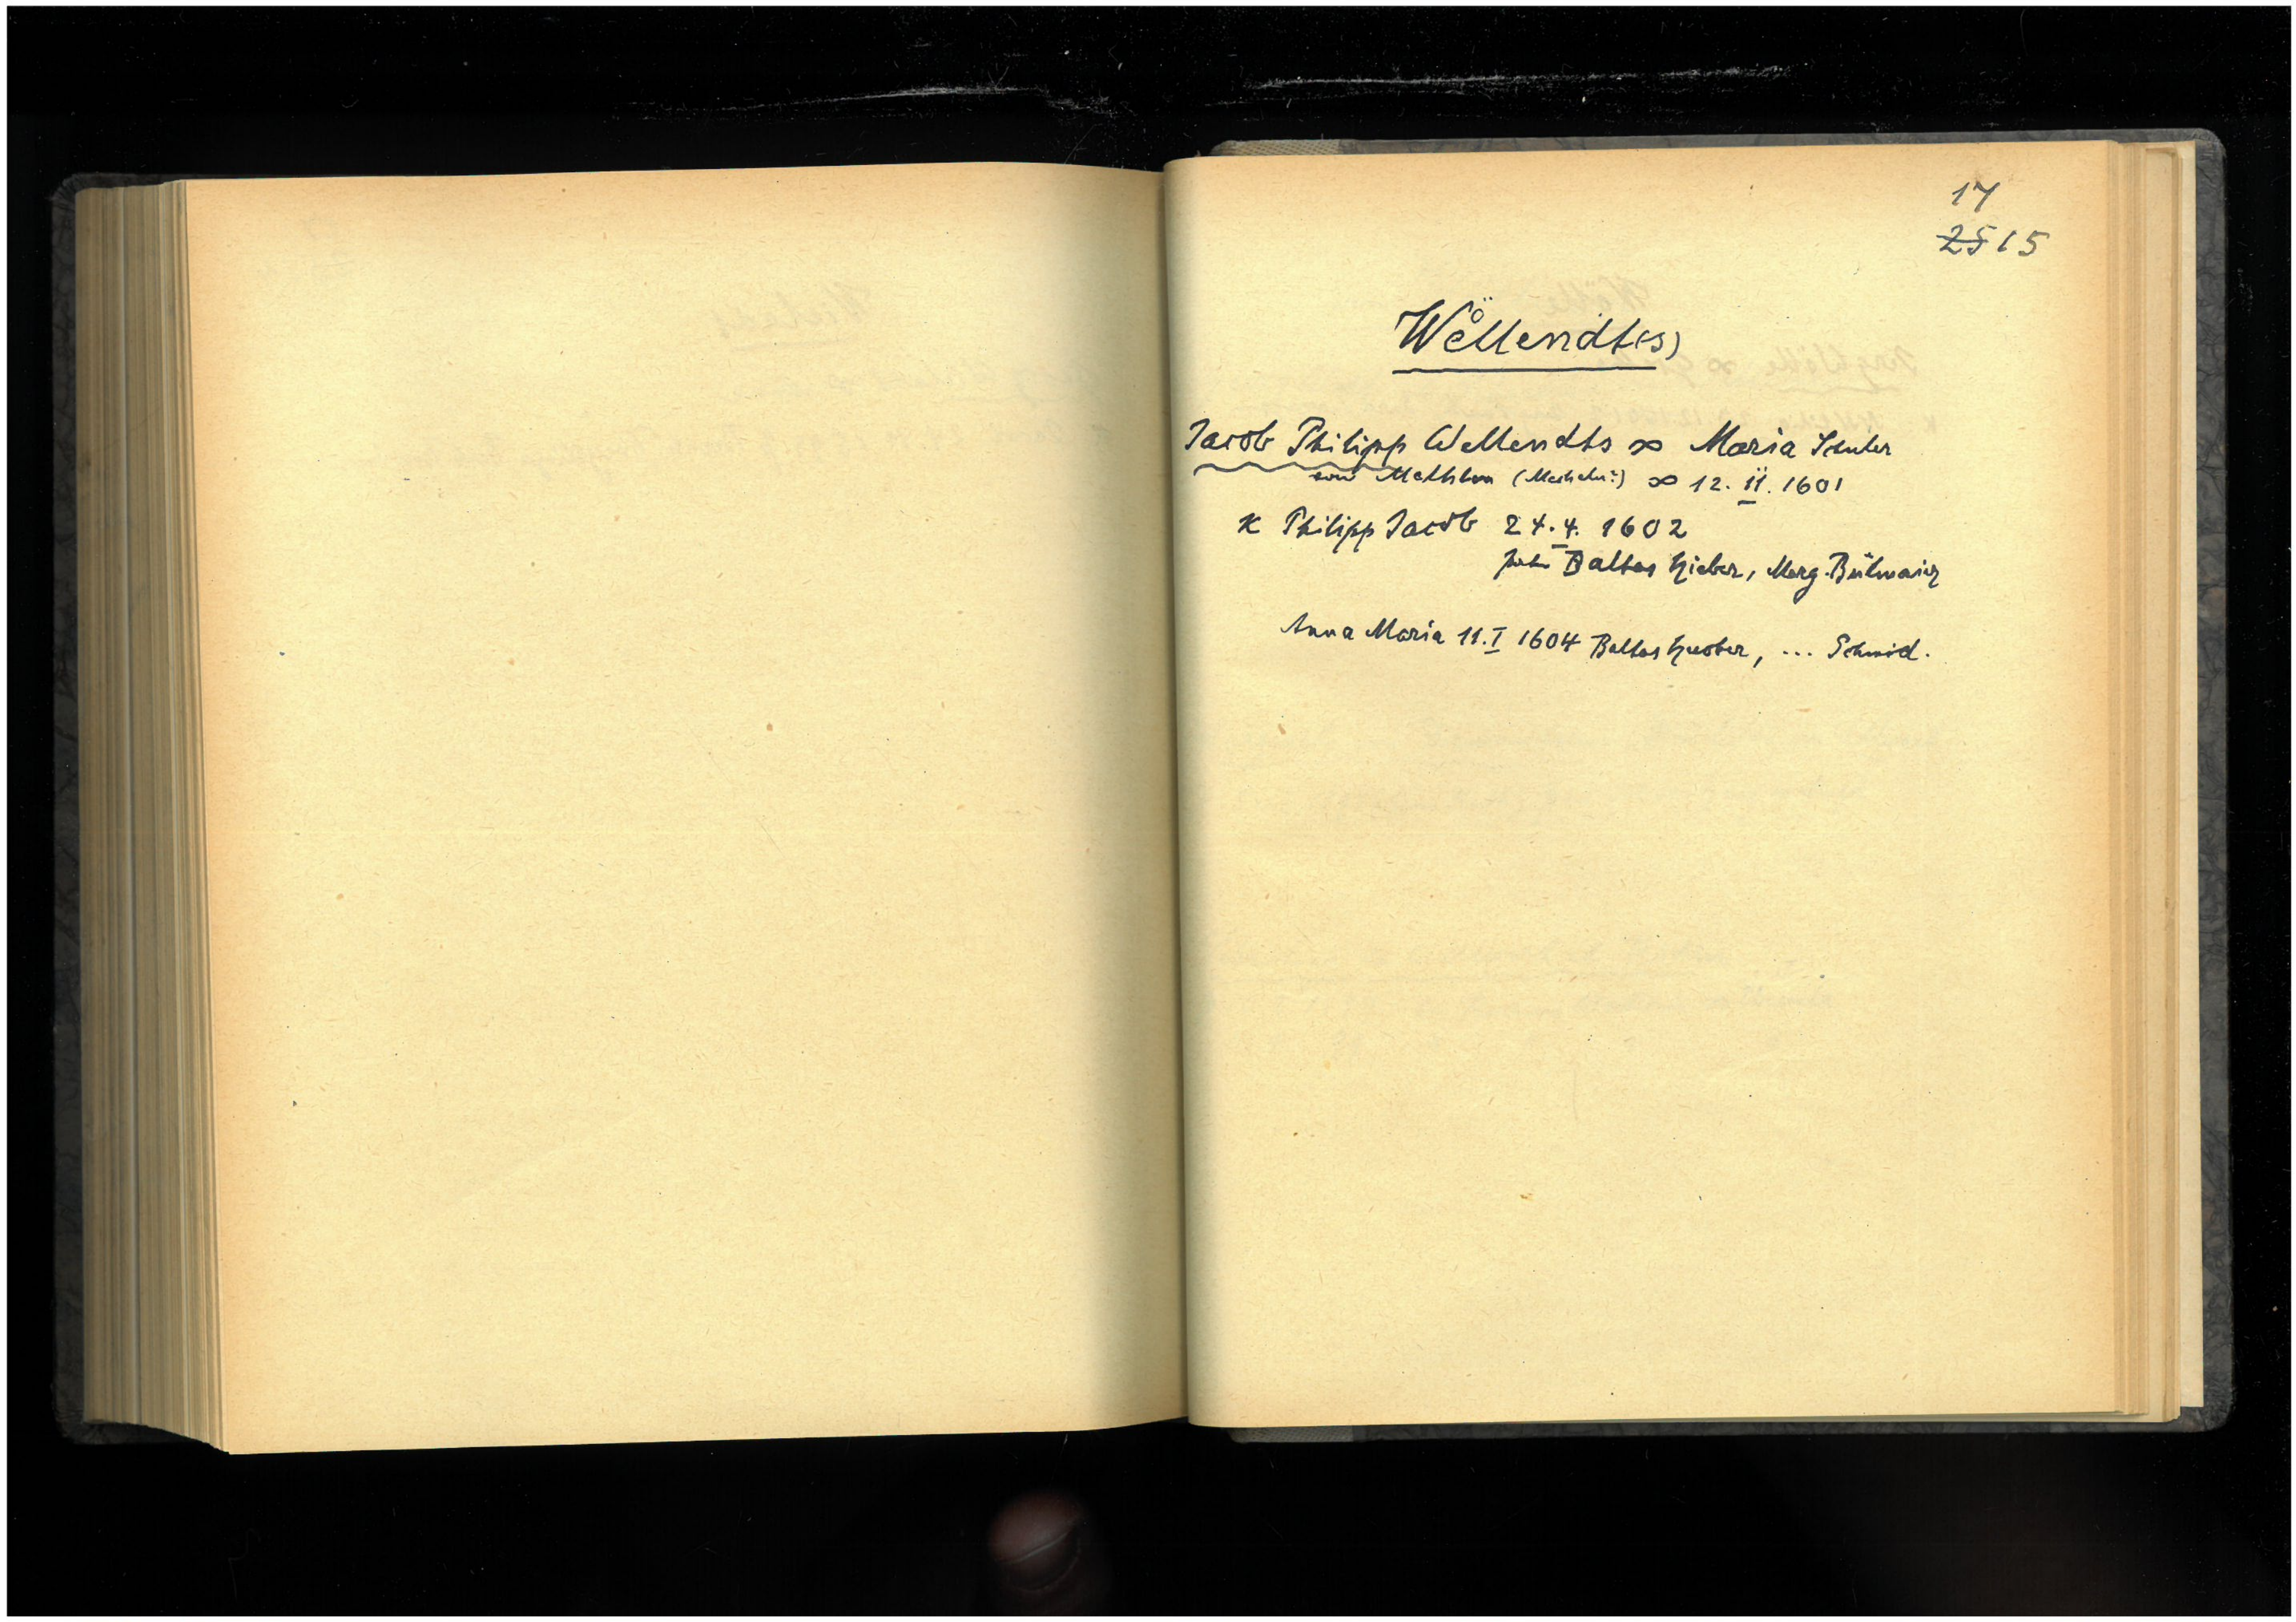 17
25 15
Wellendt(s)
Jacob Philipp Wellendts ∞ Maria Schuler
von Mechlen (Mecheln?) ∞ 12. II. 1601
K Philipp Jacob 24.4. 1602
Baltas Hieber, Marg. Bülmaier
Anna Maria 11.I 1604 Baltas Hueber, ... Schmid.